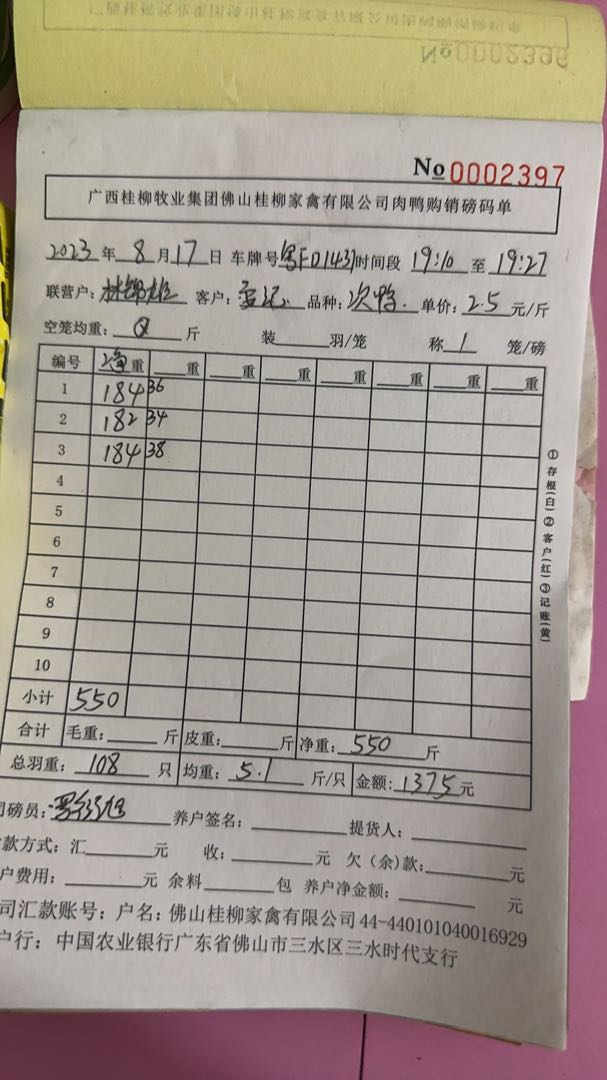 No0002396
No0002397
广西桂柳牧业集团佛山桂柳家禽有限公司肉鸭购销磅码单
2023年8月17日 车牌号粤FD1437时间段 19:10至19:27
联营户: 林锦雄 客户: 品种: 次鸭. 单价: 2.5元/斤
空笼均重: 0 斤 装 羽/笼 称 1 笼/磅
编号 净重 重 重 重 重 重 重 重
1 184 36
2 182 34
3 184 38
4
5
6
7
8
9
10
小计 550
合计 毛重: 斤 皮重: 斤 净重: 550 斤
总羽重: 108 只 均重: 5.1 斤/只 金额: 1375元
司磅员: 养户签名: 提货人:
款方式: 汇 元 收: 元 欠(余)款: 元
户费用: 元 余料 包 养户净金额: 元
司汇款账号: 户名: 佛山桂柳家禽有限公司44-440101040016929
户行: 中国农业银行广东省佛山市三水区三水时代支行
①存根(白)②客户(红)③记账(黄)